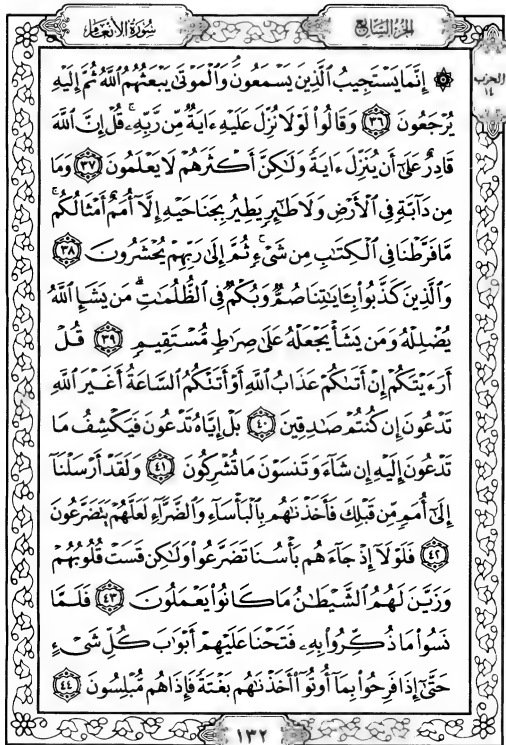 سُورَةُ الأَنْعَام
الجُزْءُ السَّابِعُ
الحزب
١٤
۞ إِنَّمَا يَسْتَجِيبُ ٱلَّذِينَ يَسْمَعُونَۘ وَٱلْمَوْتَىٰ يَبْعَثُهُمُ ٱللَّهُ ثُمَّ إِلَيْهِ
يُرْجَعُونَ ٣٦ وَقَالُوا۟ لَوْلَا نُزِّلَ عَلَيْهِ ءَايَةٌ مِّن رَّبِّهِۦۚ قُلْ إِنَّ ٱللَّهَ
قَادِرٌ عَلَىٰٓ أَن يُنَزِّلَ ءَايَةً وَلَٰكِنَّ أَكْثَرَهُمْ لَا يَعْلَمُونَ ٣٧ وَمَا
مِن دَآبَّةٍ فِى ٱلْأَرْضِ وَلَا طَٰٓئِرٍ يَطِيرُ بِجَنَاحَيْهِ إِلَّآ أُمَمٌ أَمْثَالُكُمۚ
مَّا فَرَّطْنَا فِى ٱلْكِتَٰبِ مِن شَىْءٍۚ ثُمَّ إِلَىٰ رَبِّهِمْ يُحْشَرُونَ ٣٨
وَٱلَّذِينَ كَذَّبُوا۟ بِـَٔايَٰتِنَا صُمٌّ وَبُكْمٌ فِى ٱلظُّلُمَٰتِۗ مَن يَشَإِ ٱللَّهُ
يُضْلِلْهُ وَمَن يَشَأْ يَجْعَلْهُ عَلَىٰ صِرَٰطٍ مُّسْتَقِيمٍ ٣٩ قُلْ
أَرَءَيْتَكُمْ إِنْ أَتَىٰكُمْ عَذَابُ ٱللَّهِ أَوْ أَتَتْكُمُ ٱلسَّاعَةُ أَغَيْرَ ٱللَّهِ
تَدْعُونَ إِن كُنتُمْ صَٰدِقِينَ ٤٠ بَلْ إِيَّاهُ تَدْعُونَ فَيَكْشِفُ مَا
تَدْعُونَ إِلَيْهِ إِن شَآءَ وَتَنسَوْنَ مَا تُشْرِكُونَ ٤١ وَلَقَدْ أَرْسَلْنَآ
إِلَىٰٓ أُمَمٍ مِّن قَبْلِكَ فَأَخَذْنَٰهُم بِٱلْبَأْسَآءِ وَٱلضَّرَّآءِ لَعَلَّهُمْ يَتَضَرَّعُونَ
٤٢ فَلَوْلَآ إِذْ جَآءَهُم بَأْسُنَا تَضَرَّعُوا۟ وَلَٰكِن قَسَتْ قُلُوبُهُمْ
وَزَيَّنَ لَهُمُ ٱلشَّيْطَٰنُ مَا كَانُوا۟ يَعْمَلُونَ ٤٣ فَلَمَّا
نَسُوا۟ مَا ذُكِّرُوا۟ بِهِۦ فَتَحْنَا عَلَيْهِمْ أَبْوَٰبَ كُلِّ شَىْءٍ
حَتَّىٰٓ إِذَا فَرِحُوا۟ بِمَآ أُوتُوٓا۟ أَخَذْنَٰهُم بَغْتَةً فَإِذَا هُم مُّبْلِسُونَ ٤٤
١٣٢